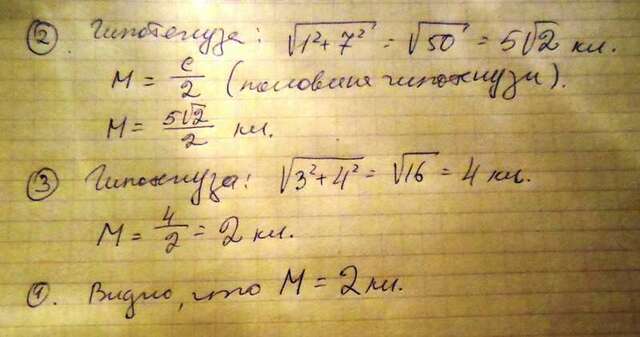 ② Гипотенуза: √1²+7² = √50 = 5√2 кл.
M = c/2 (половина гипотенузы).
M = 5√2/2 кл.
③ Гипотенуза: √3²+4² = √16 = 4 кл.
M = 4/2 = 2 кл.
④. Видно, что M = 2 кл.